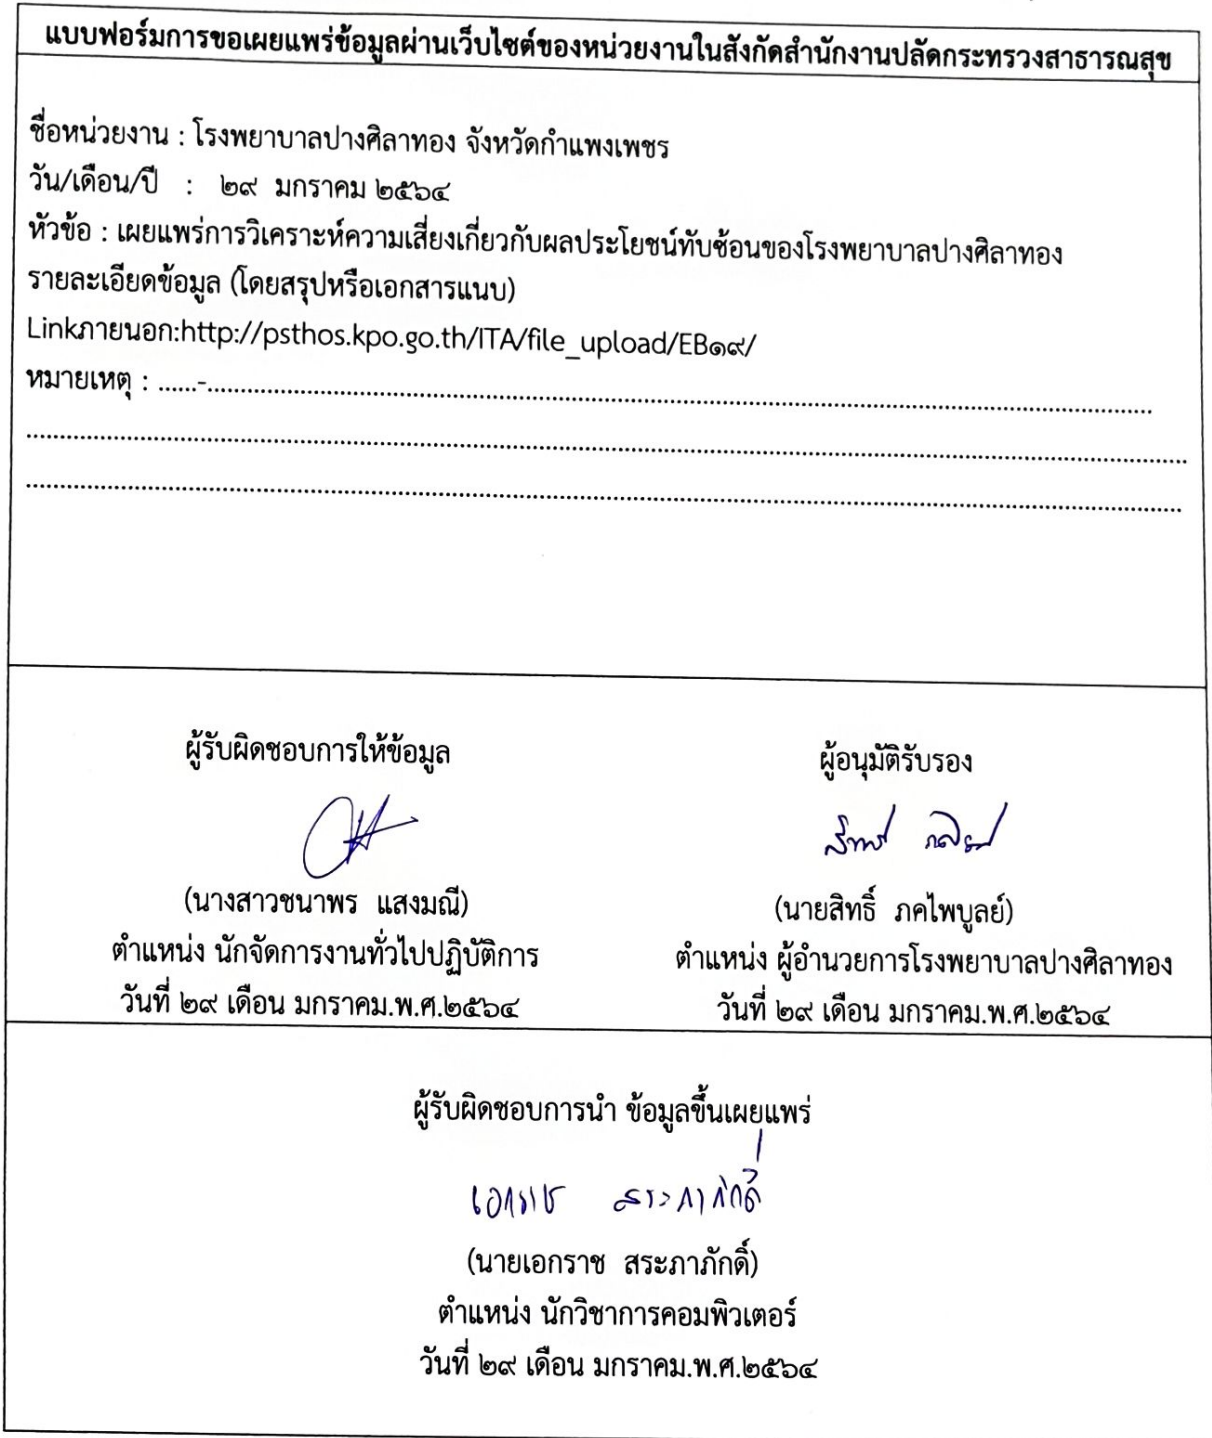 แบบฟอร์มการขอเผยแพร่ข้อมูลผ่านเว็บไซต์ของหน่วยงานในสังกัดสำนักงานปลัดกระทรวงสาธารณสุข
ชื่อหน่วยงาน : โรงพยาบาลปางศิลาทอง จังหวัดกำแพงเพชร
วัน/เดือน/ปี : ๒๙ มกราคม ๒๕๖๔
หัวข้อ : เผยแพร่การวิเคราะห์ความเสี่ยงเกี่ยวกับผลประโยชน์ทับซ้อนของโรงพยาบาลปางศิลาทอง
รายละเอียดข้อมูล (โดยสรุปหรือเอกสารแนบ)
Linkภายนอก:http://psthos.kpo.go.th/ITA/file_upload/EB๑๙/
หมายเหตุ : ......-......
ผู้รับผิดชอบการให้ข้อมูล
(นางสาวชนาพร แสงมณี)
ตำแหน่ง นักจัดการงานทั่วไปปฏิบัติการ
วันที่ ๒๙ เดือน มกราคม.พ.ศ.๒๕๖๔
ผู้อนุมัติรับรอง
(นายสิทธิ์ ภคไพบูลย์)
ตำแหน่ง ผู้อำนวยการโรงพยาบาลปางศิลาทอง
วันที่ ๒๙ เดือน มกราคม.พ.ศ.๒๕๖๔
ผู้รับผิดชอบการนำ ข้อมูลขึ้นเผยแพร่
เอกราช สระภาภักดิ์
(นายเอกราช สระภาภักดิ์)
ตำแหน่ง นักวิชาการคอมพิวเตอร์
วันที่ ๒๙ เดือน มกราคม.พ.ศ.๒๕๖๔